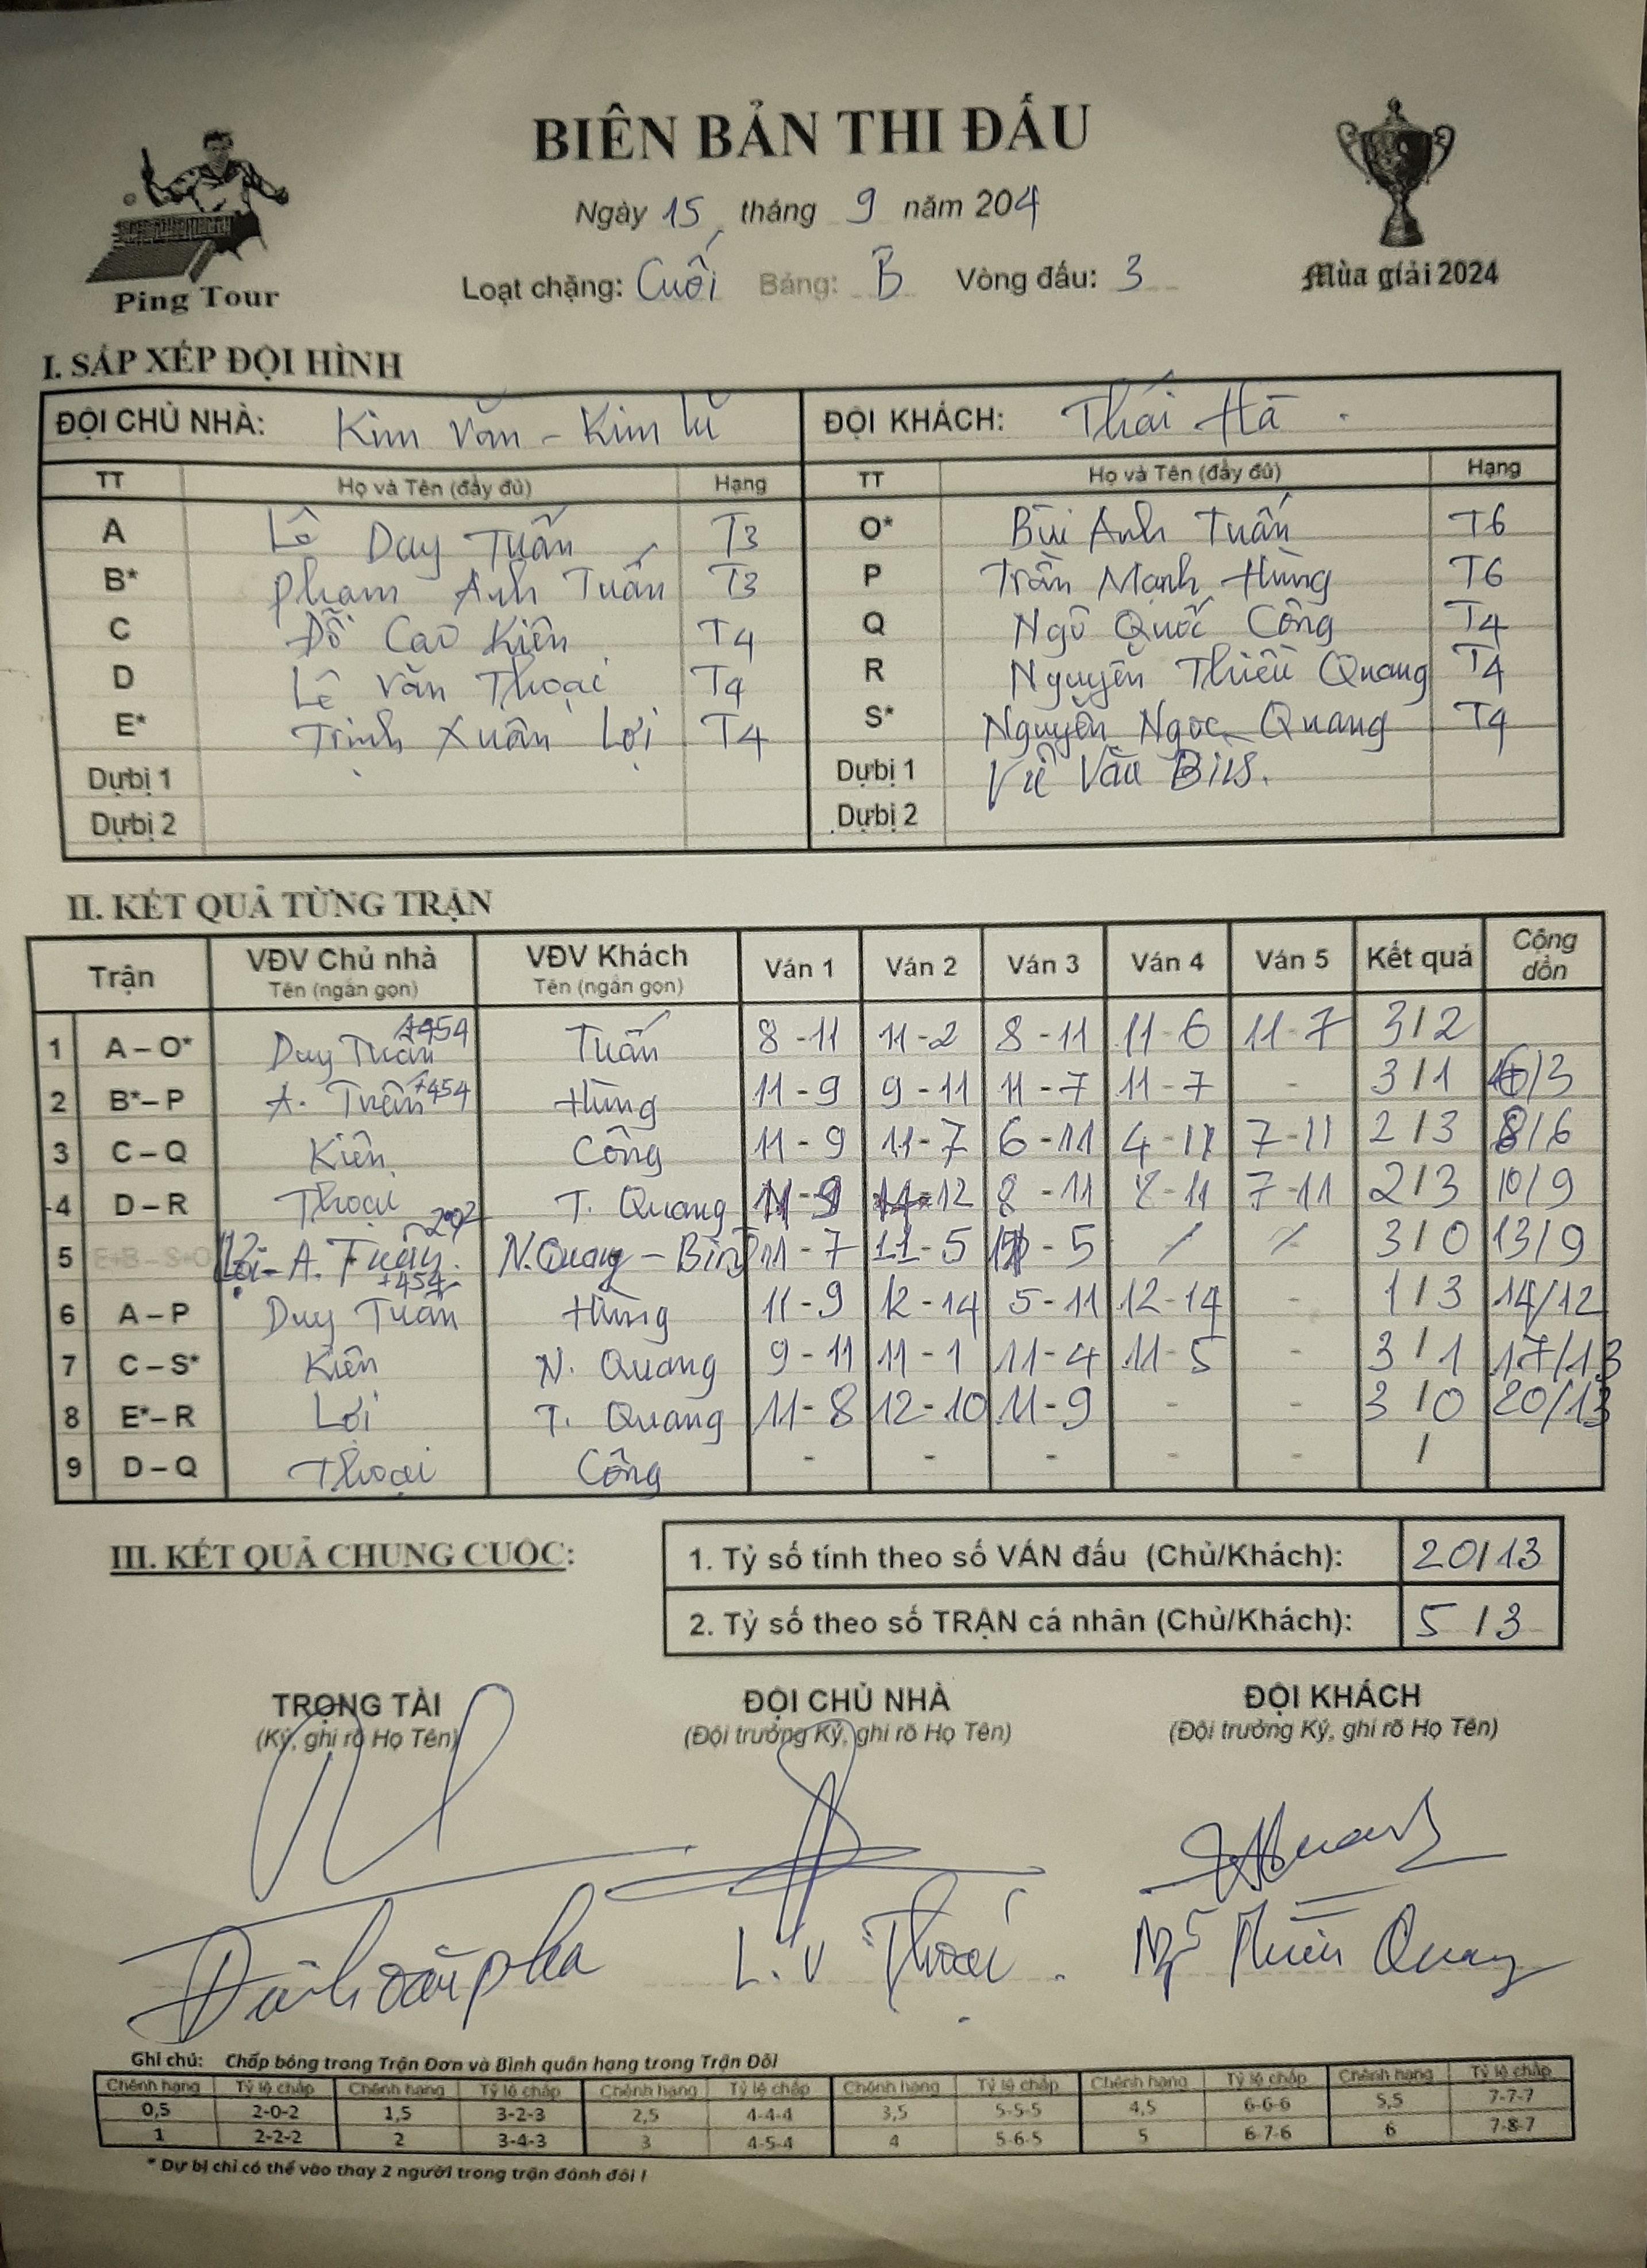 BIÊN BẢN THI ĐẤU
Ngày 15 tháng 9 năm 204
Loạt chặng: Cuối Bảng: B Vòng đấu: 3
Ping Tour
Mùa giải 2024
I. SẮP XẾP ĐỘI HÌNH
ĐỘI CHỦ NHÀ: Kim Văn - Kim lũ ĐỘI KHÁCH: Thái Hà
TT Họ và Tên (đầy đủ) Hạng TT Họ và Tên (đầy đủ) Hạng
A Lê Duy Tuấn T3 O* Bùi Anh Tuấn T6
B* Phạm Anh Tuấn T3 P Trần Mạnh Hùng T6
C Đỗ Cao Kiên T4 Q Ngô Quốc Công T4
D Lê Văn Thoại T4 R Nguyễn Thiều Quang T4
E* Trịnh Xuân Lợi T4 S* Nguyễn Ngọc Quang T4
Dự bị 1 Dự bị 1 Vũ Văn
Dự bị 2 Dự bị 2
II. KẾT QUẢ TỪNG TRẬN
Trận VĐV Chủ nhà Tên (ngắn gọn) VĐV Khách Tên (ngắn gọn) Ván 1 Ván 2 Ván 3 Ván 4 Ván 5 Kết quả Cộng dồn
1 A – O* Duy Tuấn +454 Tuấn 8 - 11 11 - 2 8 - 11 11 - 6 11 - 7 3 / 2
2 B* – P A. Tuấn +454 Hùng 11 - 9 9 - 11 11 - 7 11 - 7 - 3 / 1 6/3
3 C – Q Kiên Công 11 - 9 11 - 7 6 - 11 4 - 11 7 - 11 2 / 3 8/6
4 D – R Thoại T. Quang 11 - 9 12 8 - 11 8 - 11 7 - 11 2 / 3 10/9
5 E+B – S+O Lợi - A. Tuấn N. Quang - 11 - 7 11 - 5 - 5 / / 3 / 0 13/9
6 A – P Duy Tuấn +454 Hùng 11 - 9 12 - 14 5 - 11 12 - 14 - 1 / 3 14/12
7 C – S* Kiên N. Quang 9 - 11 11 - 1 11 - 4 11 - 5 - 3 / 1 17/13
8 E* – R Lợi T. Quang 11 - 8 12 - 10 11 - 9 - - 3 / 0 20/13
9 D – Q Thoại Công - - - - - /
III. KẾT QUẢ CHUNG CUỘC:
1. Tỷ số tính theo số VÁN đấu (Chủ/Khách): 20/13
2. Tỷ số theo số TRẬN cá nhân (Chủ/Khách): 5 / 3
TRỌNG TÀI ĐỘI CHỦ NHÀ ĐỘI KHÁCH
(Ký, ghi rõ Họ Tên) (Đội trưởng Ký, ghi rõ Họ Tên) (Đội trưởng Ký, ghi rõ Họ Tên)
L. V Thoại Thiều Quang
Ghi chú: Chấp bóng trong Trận Đơn và Bình quân hạng trong Trận Đôi
Chênh hạng Tỷ lệ chấp Chênh hạng Tỷ lệ chấp Chênh hạng Tỷ lệ chấp Chênh hạng Tỷ lệ chấp Chênh hạng Tỷ lệ chấp Chênh hạng Tỷ lệ chấp
0,5 2-0-2 1,5 3-2-3 2,5 4-4-4 3,5 5-5-5 4,5 6-6-6 5,5 7-7-7
1 2-2-2 2 3-4-3 3 4-5-4 4 5-6-5 5 6-7-6 6 7-8-7
* Dự bị chỉ có thể vào thay 2 người trong trận đánh đôi !